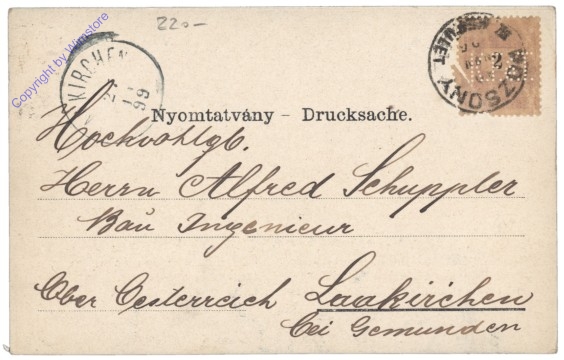 220-
KIRCHEN
99
POZSONY
Nyomtatvány – Drucksache.
Hochwohlgb.
Herrn Alfred Schuppler
Bau Ingenieur
Ober Oesterreich Laakirchen
bei Gemunden
Copyright by Winstore